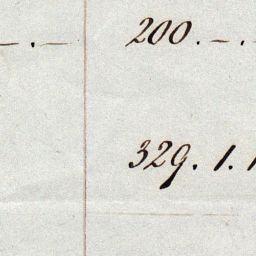 – . – 200 . – .
329 . 1 . 1